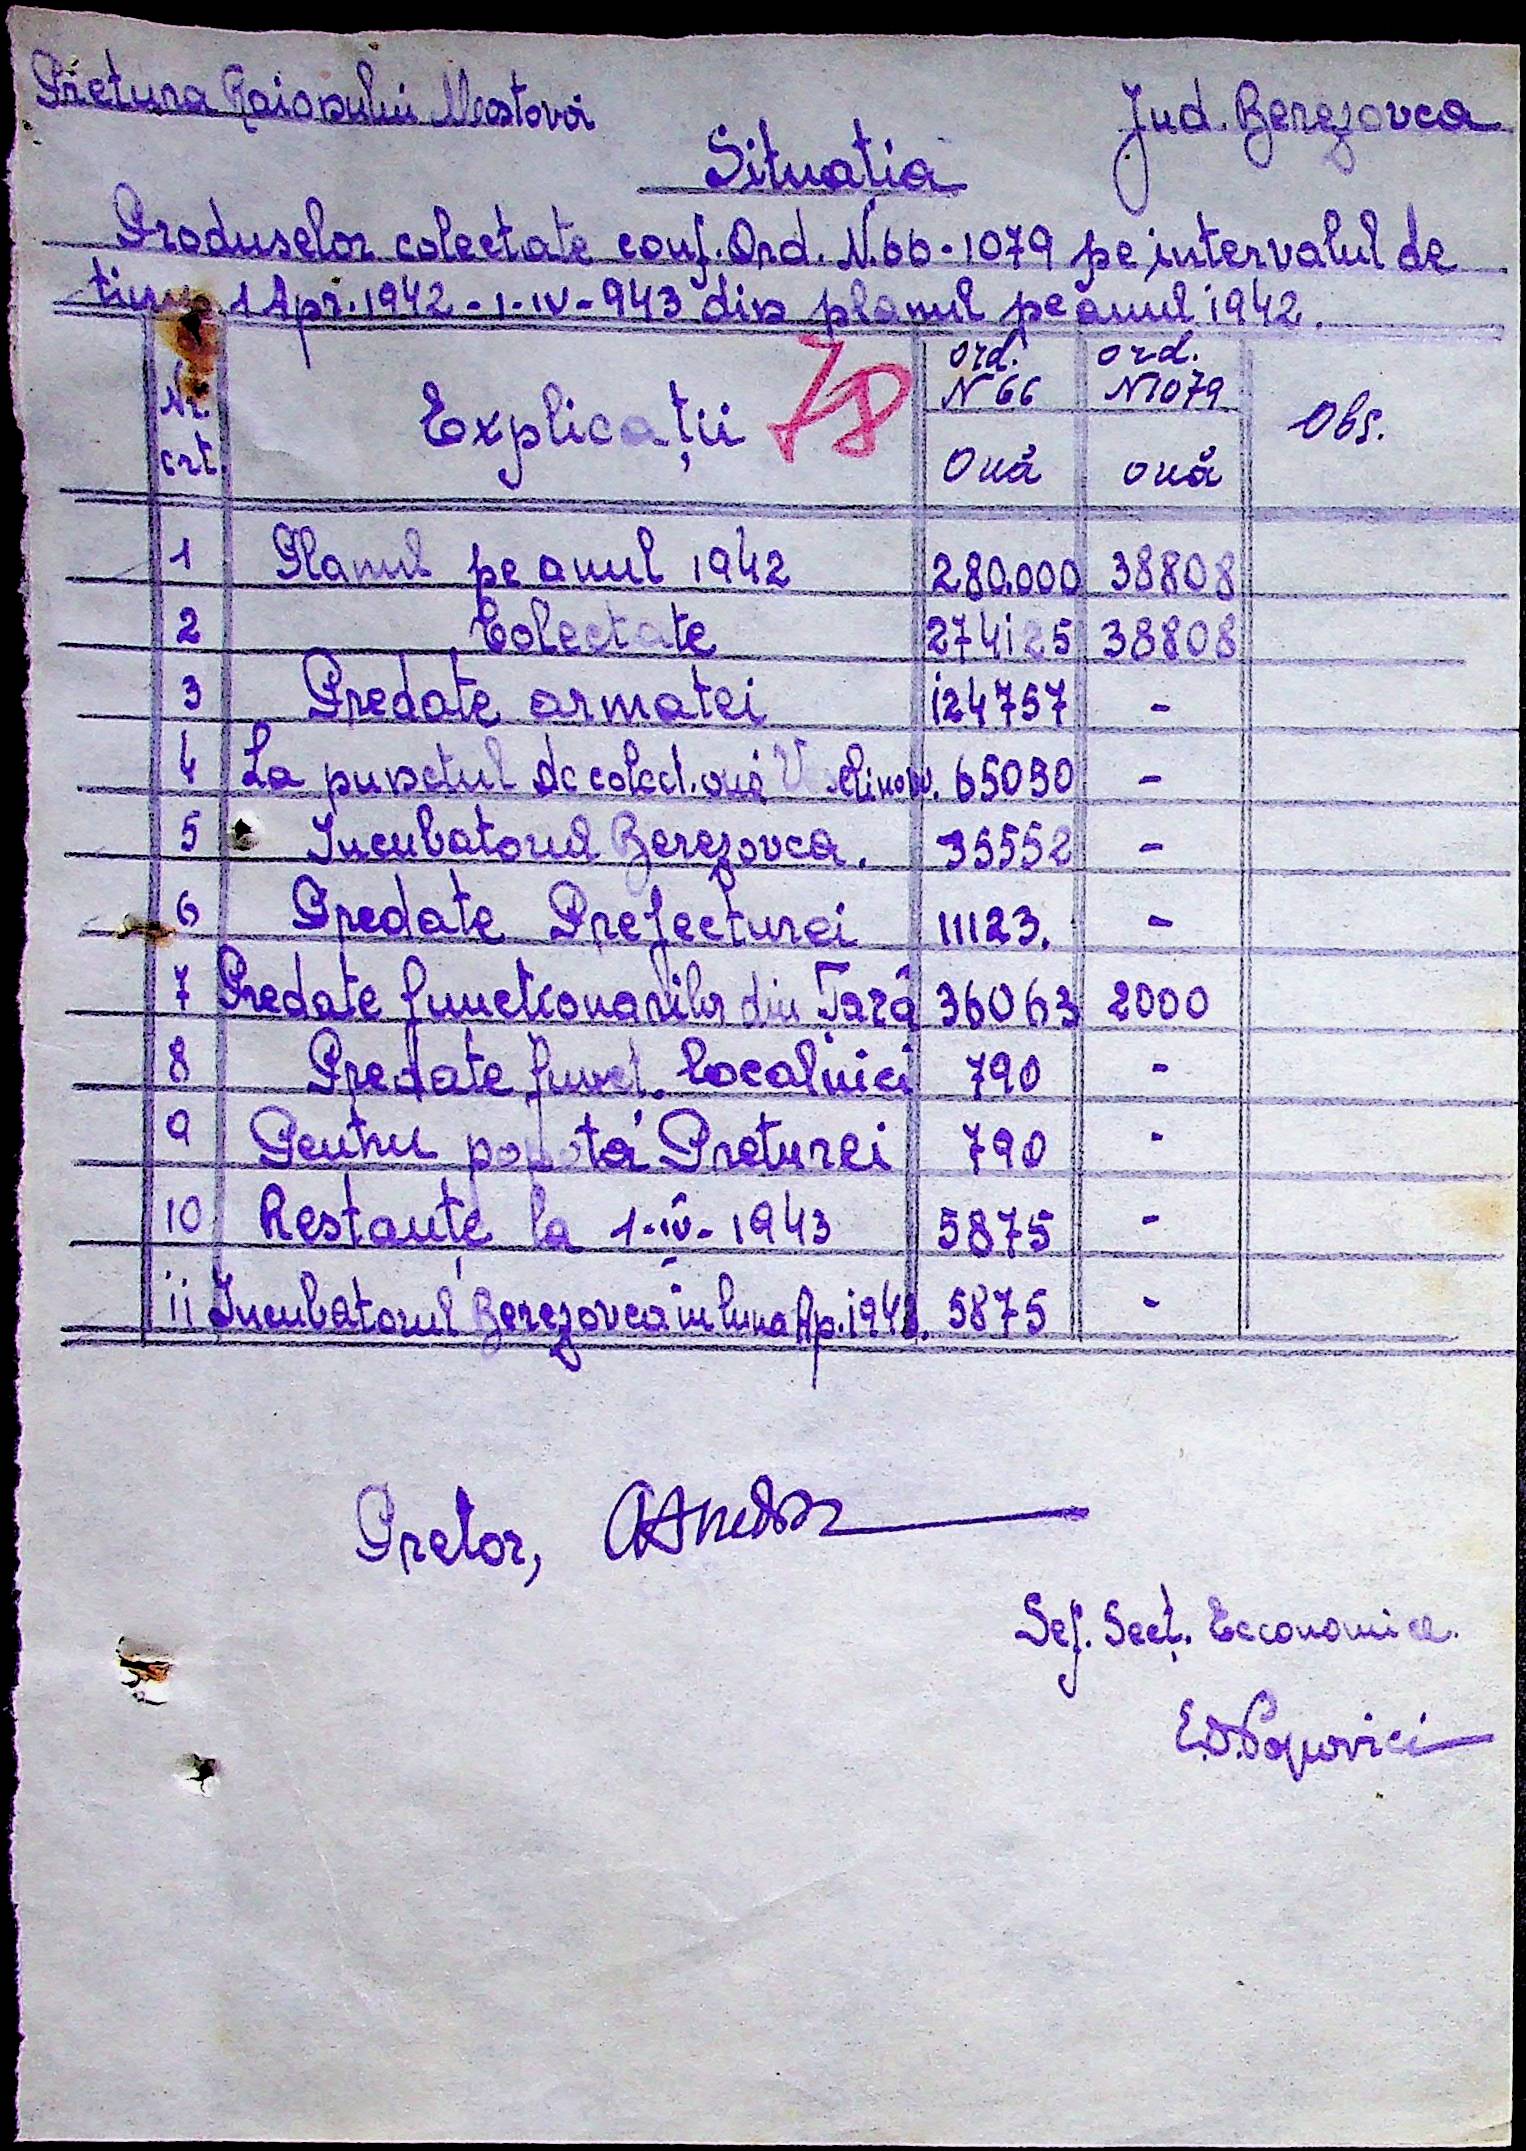 Pretura Raionului Mostovoi
Jud. Berezovca
Situatia
Produselor colectate conf. Ord. N.66-1079 pe intervalul de
timp 1 Apr. 1942 - 1-IV-943 din planul pe anul 1942.
78
Nr. crt. Explicații ord. N 66 ouă ord. N 1079 ouă Obs.
1 Planul pe anul 1942 280.000 38808
2 Colectate 274125 38808
3 Predate armatei 124757 -
4 La punctul de colect. ouă 65030 -
5 Incubatorul Berezovca. 35552 -
6 Predate Prefecturei 11123. -
7 Predate functionarilor din Tară 36063 2000
8 Predate funct. localnici 790 -
9 Pentru popota Preturei 790 -
10 Restanțe la 1-IV-1943 5875 -
11 Incubatorul Berezovca in luna Ap. 1943. 5875 -
Pretor,
Sef. Secț. Economica.
E.D.Popovici